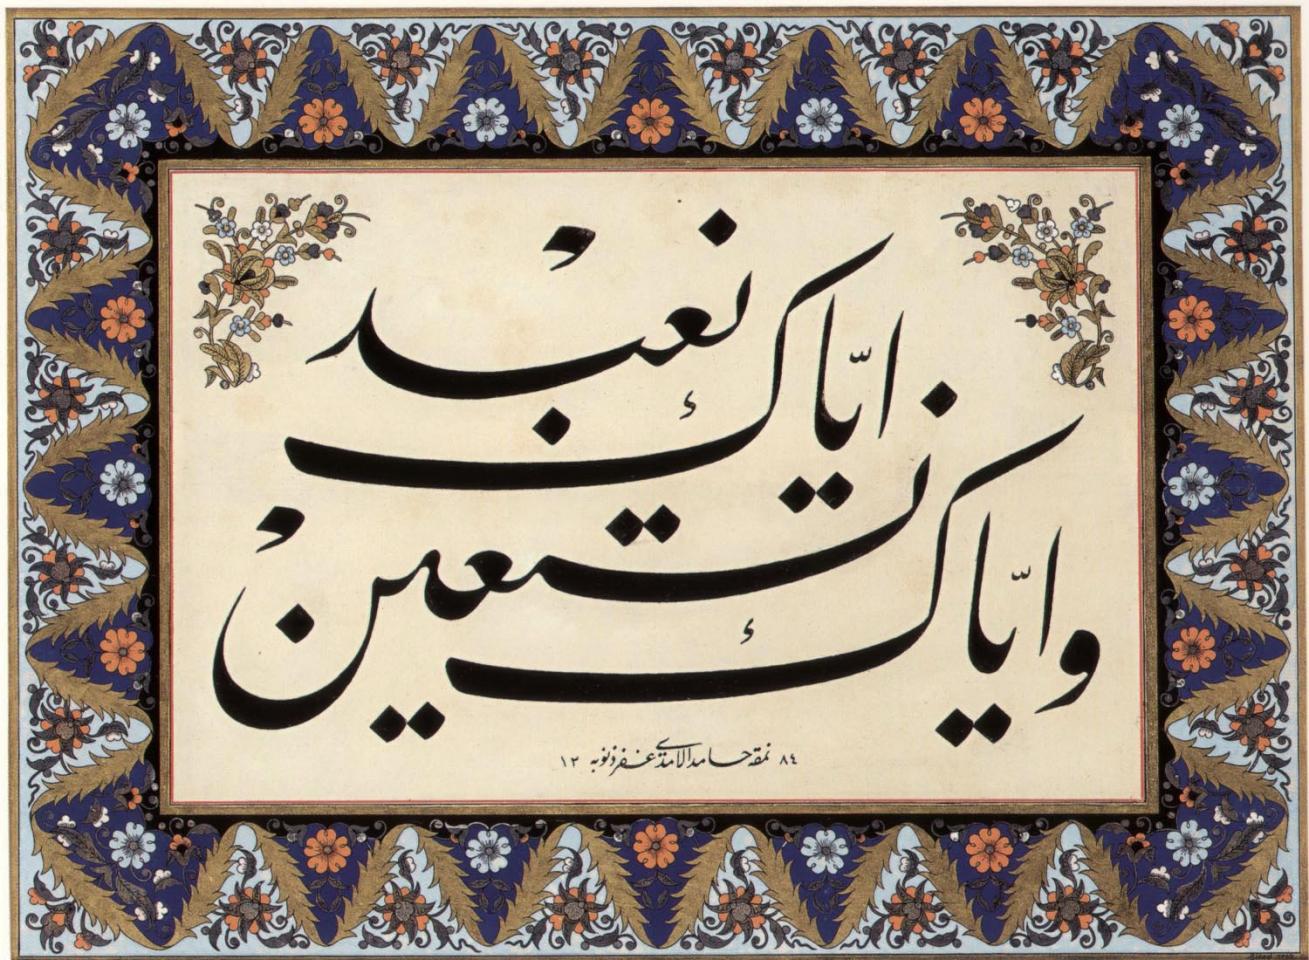 اياّك نعبد
واياّك نستعين
٨٤ نمقه حامد الآمدى غفر ذنوبه ١٣